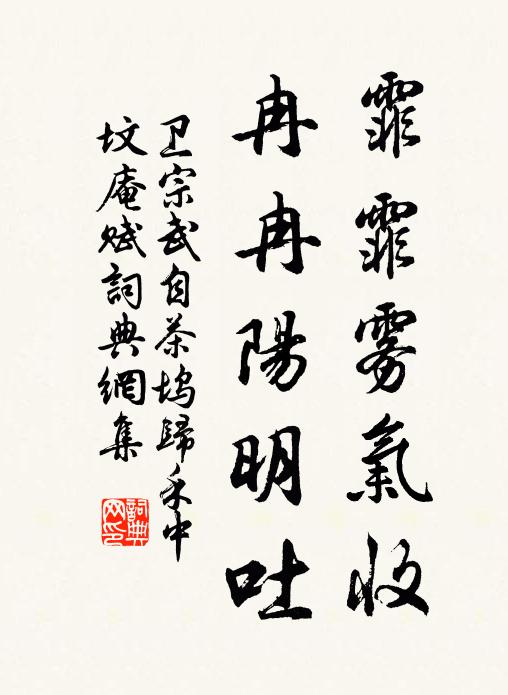 霏霏雾氣收
冉冉陽明吐
卫宗武自茶塢歸禾中
坟庵赋詞典網集
詞典网印